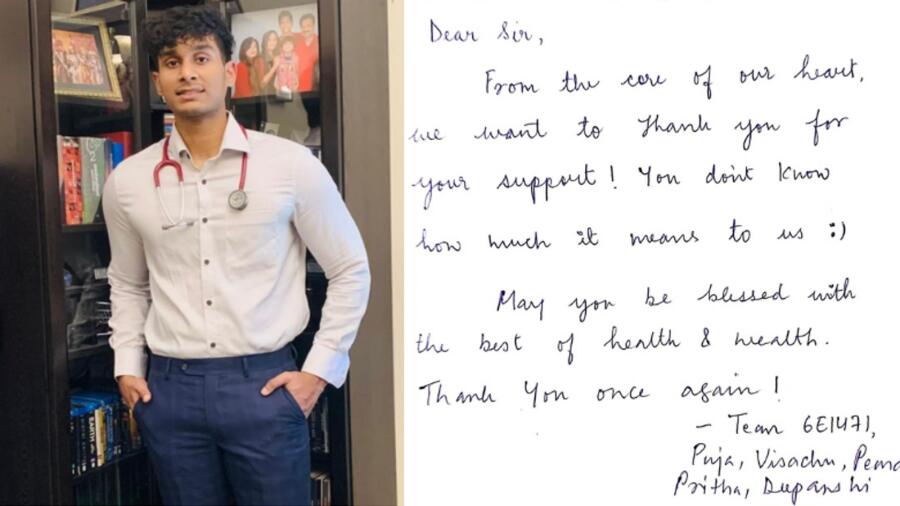 Dear Sir,
From the core of our heart,
we want to Thank you for
your support! You don't know
how much it means to us :)
May you be blessed with
the best of health & wealth.
Thank You once again!
- Team 6E1471,
Puja, Visachu, Pema
Pritha, Dupanshi
EARTH